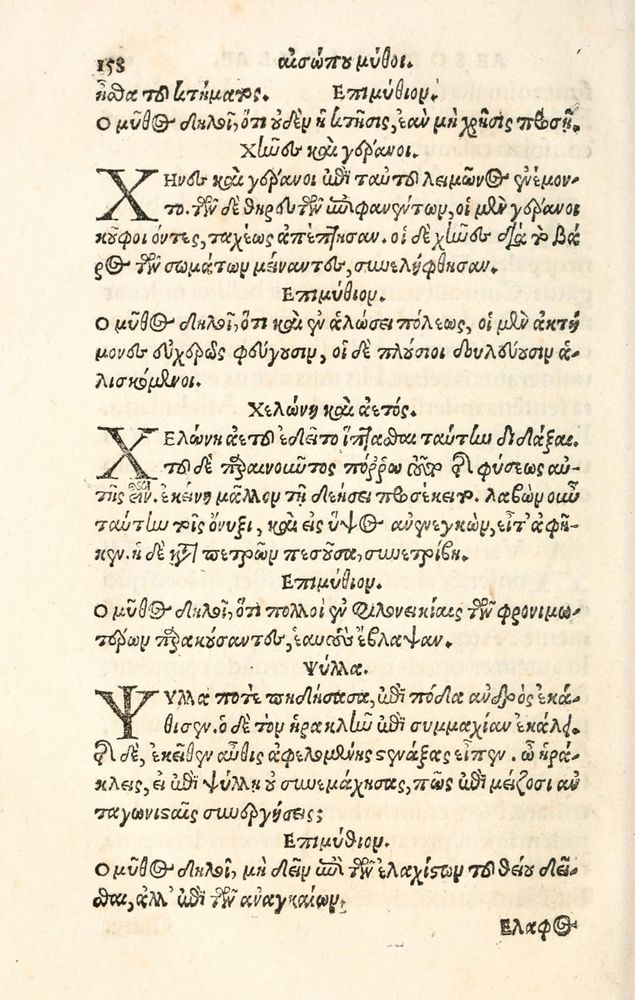 158 αἰσώπου μῦθοι.
ῆσθα τοῦ κτήματος. Ἐπιμύθιον.
Ὁ μῦθος δηλοῖ, ὅτι οὐδὲν ἡ κτῆσις, ἐὰν μὴ χρῆσις προσῇ.
Χῆνες καὶ γέρανοι.
ΧΗνες καὶ γέρανοι ἐπὶ ταὐτοῦ λειμῶνος ἐνέμον-
το. τῶν δὲ θηρευτῶν ἐπιφανέντων, οἱ μὲν γέρανοι
κοῦφοι ὄντες, ταχέως ἀπέπτησαν. οἱ δὲ χῆνες διὰ τὸ βά
ρος τῶν σωμάτων μείναντες, συνελήφθησαν.
Ἐπιμύθιον.
Ὁ μῦθος δηλοῖ, ὅτι καὶ ἐν ἁλώσει πόλεως, οἱ μὲν ἀκτή
μονες εὐχερῶς φεύγουσιν, οἱ δὲ πλούσιοι δουλεύουσιν ἁ-
λισκόμενοι.
Χελώνη καὶ ἀετός.
ΧΕλώνη ἀετοῦ ἐδεῖτο ἵπτασθαι ταύτην διδάξαι.
τοῦ δὲ παραινοῦντος πόρρω τοῦτο τῆς φύσεως αὐ-
τῆς εἶναι. ἐκείνη μᾶλλον τῇ δεήσει προσέκειτο. λαβὼν οὖν
ταύτην τοῖς ὄνυξι, καὶ εἰς ὕψος ἀνενεγκὼν, εἶτ' ἀφῆ-
κεν. ἡ δὲ κατὰ πετρῶν πεσοῦσα, συνετρίβη.
Ἐπιμύθιον.
Ὁ μῦθος δηλοῖ, ὅτι πολλοὶ ἐν φιλονεικίαις τῶν φρονιμω-
τέρων παρακούσαντες, ἑαυτοὺς ἔβλαψαν.
Ψύλλα.
ΨΥλλα ποτὲ πηδήσασα, ἐπὶ πόδα ἀνδρὸς ἐκά-
θισεν. ὁ δὲ τὸν ἡρακλῆν ἐπὶ συμμαχίαν ἐκάλει.
τῆς δὲ, ἐκεῖθεν αὖθις ἀφελομένης στενάξας εἶπεν. ὦ ἡρά-
κλεις, εἰ ἐπὶ ψύλλῃ οὐ συνεμάχησας, πῶς ἐπὶ μείζοσι ἀν
ταγωνισταῖς συνεργήσεις;
Ἐπιμύθιον.
Ὁ μῦθος δηλοῖ, μὴ δεῖν ἐπὶ τῶν ἐλαχίστων τοῦ θείου δεῖ-
σθαι, ἀλλ' ἐπὶ τῶν ἀναγκαίων.
Ἔλαφος